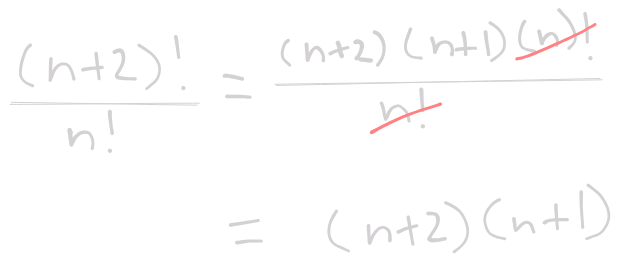 (n+2)! / n! = (n+2)(n+1)(n)! / n!
= (n+2)(n+1)